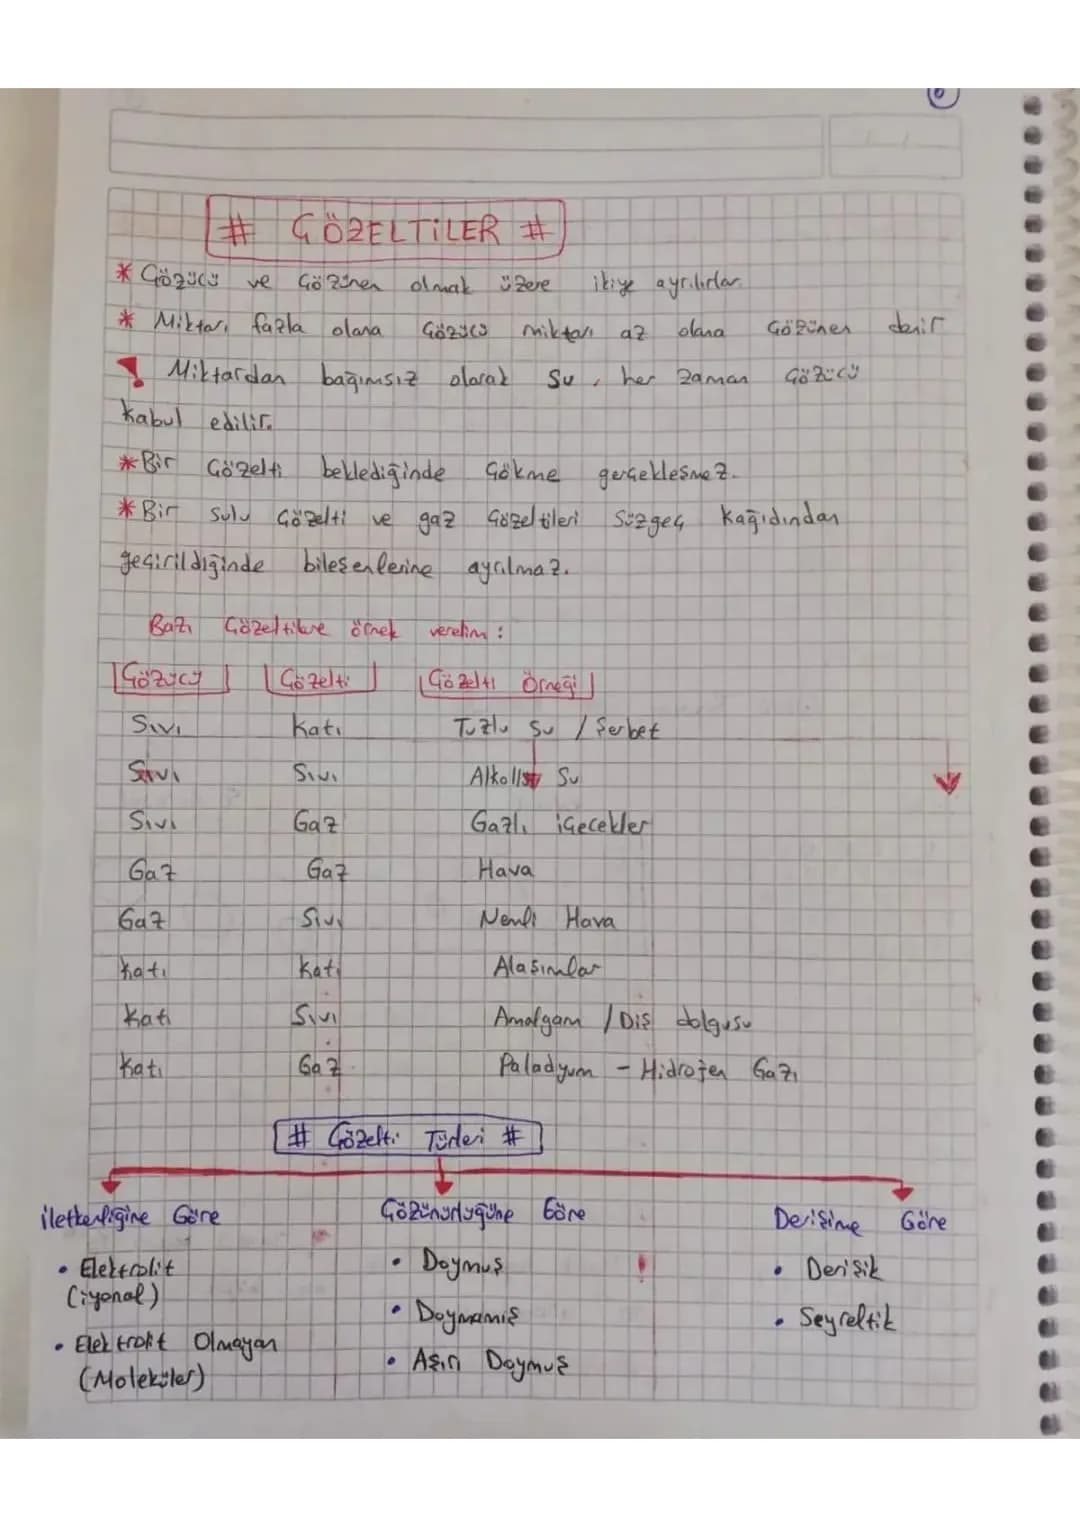 6
# ÇÖZELTİLER #
* Çözücü ve Çözünen olmak üzere ikiye ayrılırlar.
* Miktarı fazla olana Çözücü miktarı az olana Çözünen denir
! Miktardan bağımsız olarak Su, her zaman Çözücü
kabul edilir.
* Bir Çözelti beklediğinde Çökme gerçekleşmez.
* Bir Sulu Çözelti ve gaz Çözeltileri Süzgeç Kağıdından
geçirildiğinde bileşenlerine ayrılmaz.
Bazı Çözeltilere örnek verelim :
Çözücü Çözelti Çözelti Örneği
Sıvı Katı Tuzlu Su / Şerbet
Sıvı Sıvı Alkollü Su
Sıvı Gaz Gazlı içecekler
Gaz Gaz Hava
Gaz Sıvı Nemli Hava
Katı Katı Alaşımlar
Katı Sıvı Amalgam / Diş dolgusu
Katı Gaz Paladyum - Hidrojen Gazı
# Çözelti Türleri #
iletkenliğine Göre Çözünürlüğüne Göre Derişime Göre
• Elektrolit • Doymuş ! • Derişik
(iyonal) • Doymamış • Seyreltik
• Elektrolit Olmayan • Aşırı Doymuş
(Moleküler)